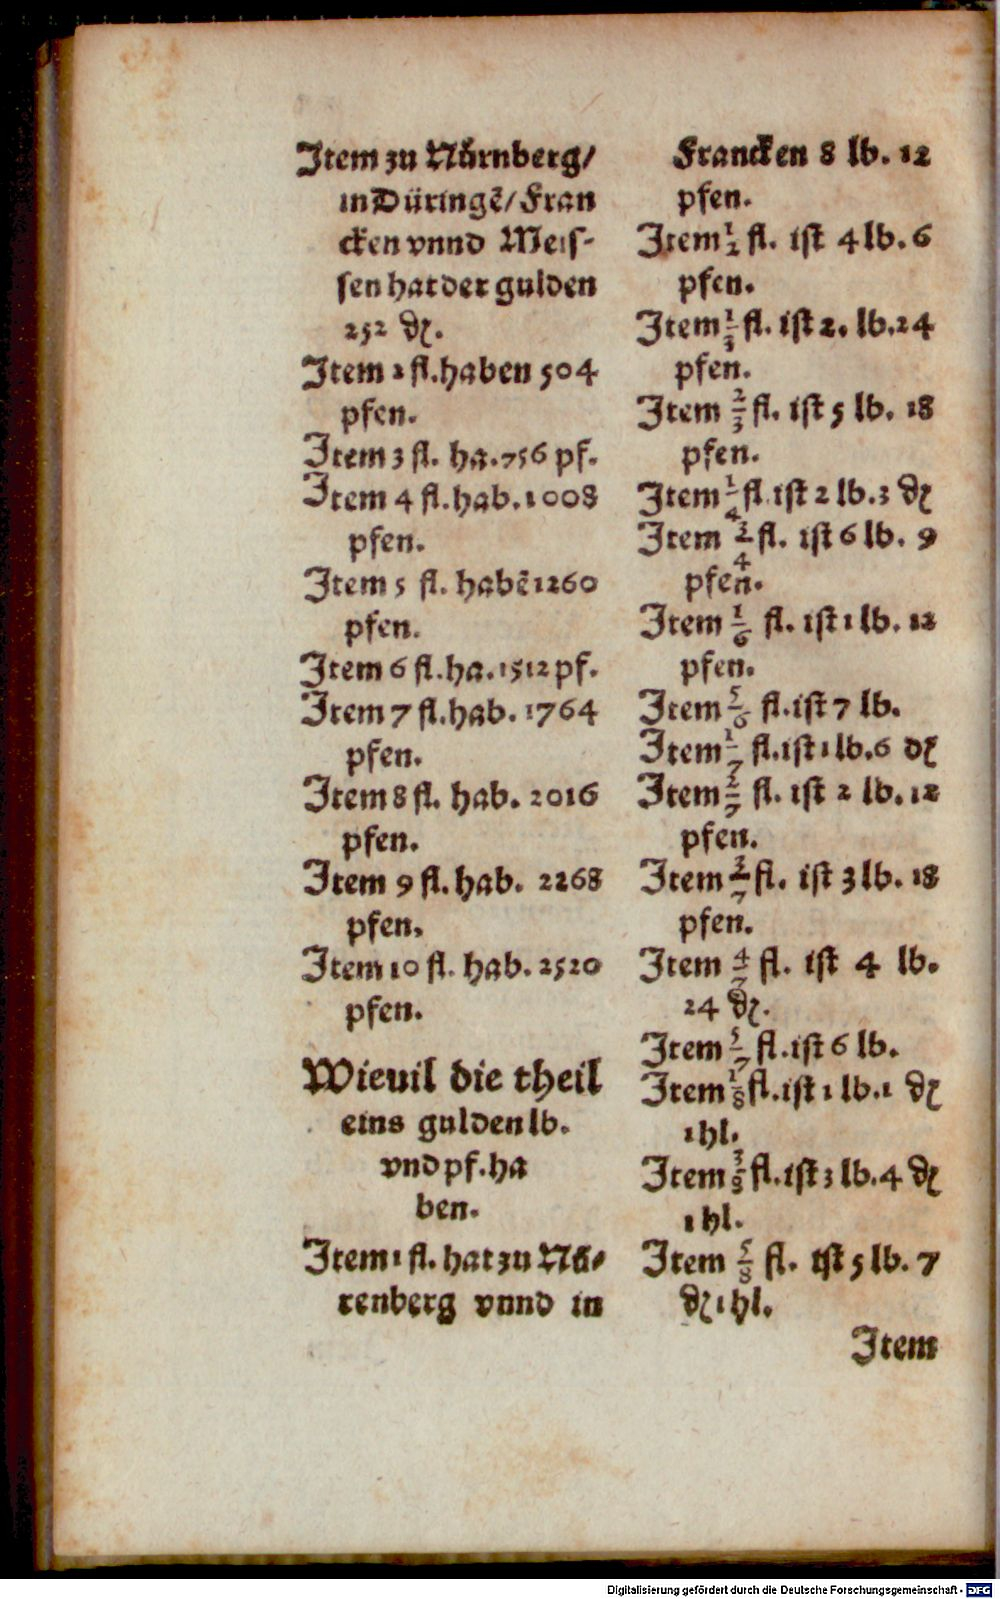 Item zu Nürnberg/
in Düringē/ Fran
cken vnnd Meis-
sen hat der gulden
252 ₰.
Item 2 fl. haben 504
pfen.
Item 3 fl. ha. 756 pf.
Item 4 fl. hab. 1008
pfen.
Item 5 fl. habē 1260
pfen.
Item 6 fl. ha. 1512 pf.
Item 7 fl. hab. 1764
pfen.
Item 8 fl. hab. 2016
pfen.
Item 9 fl. hab. 2268
pfen.
Item 10 fl. hab. 2520
pfen.
Wieuil die theil
eins gulden lb.
vnd pf. ha
ben.
Item 1 fl. hat zu Nü-
renberg vnnd in
Francken 8 lb. 12
pfen.
Item 1/2 fl. ist 4 lb. 6
pfen.
Item 1/3 fl. ist 2. lb. 24
pfen.
Item 2/3 fl. ist 5 lb. 18
pfen.
Item 1/4 fl. ist 2 lb. 3 ₰
Item 3/4 fl. ist 6 lb. 9
pfen.
Item 1/6 fl. ist 1 lb. 12
pfen.
Item 5/6 fl. ist 7 lb.
Item 1/7 fl. ist 1 lb. 6 ₰
Item 2/7 fl. ist 2 lb. 12
pfen.
Item 3/7 fl. ist 3 lb. 18
pfen.
Item 4/7 fl. ist 4 lb.
24 ₰.
Item 5/7 fl. ist 6 lb.
Item 1/8 fl. ist 1 lb. 1 ₰
1 hl.
Item 3/8 fl. ist 3 lb. 4 ₰
1 hl.
Item 5/8 fl. ist 5 lb. 7
₰ 1 hl.
Item
Digitalisierung gefördert durch die Deutsche Forschungsgemeinschaft - DFG